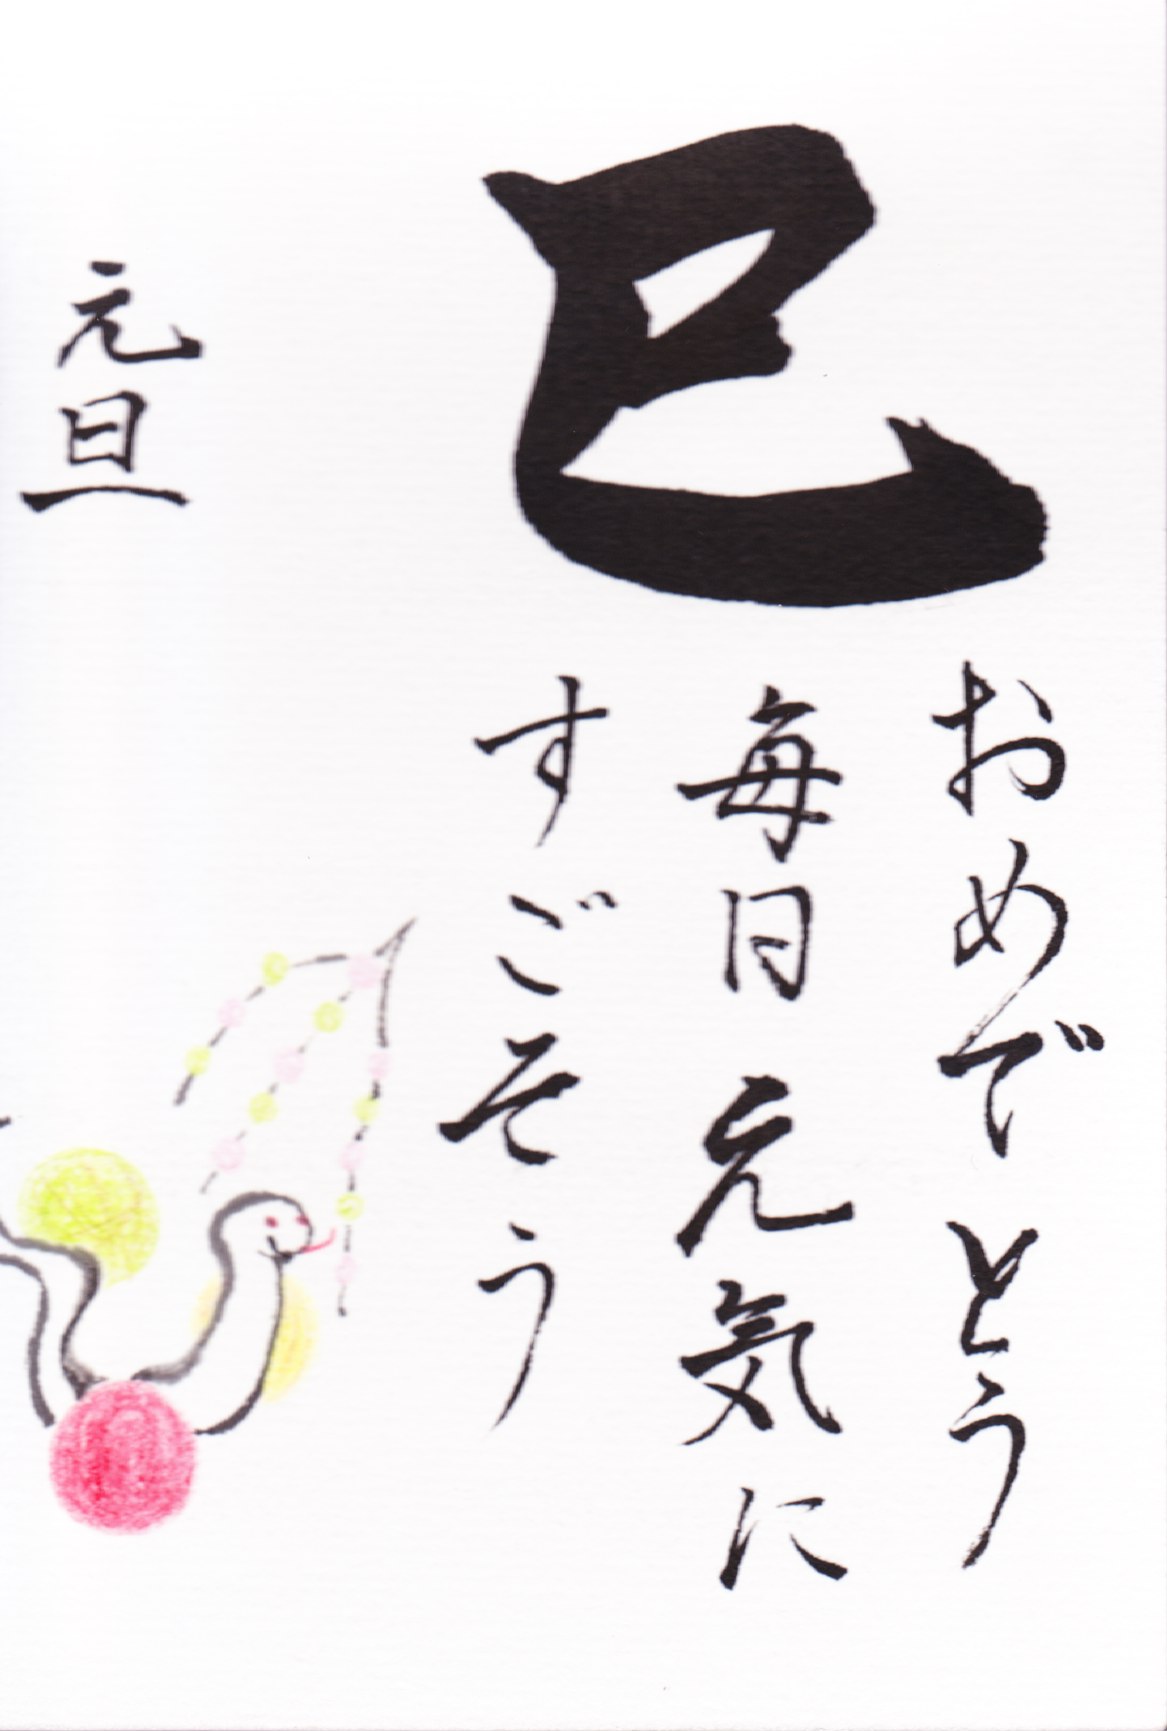 巳
おめでとう
毎日元気に
すごそう
元旦